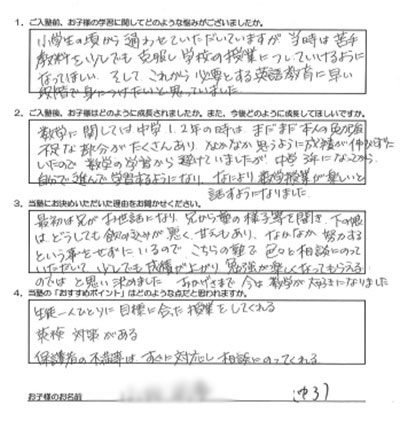 1．ご入塾前、お子様の学習に関してどのような悩みがございましたか。
小学生の頃から通わせていただいていますが 当時は苦手
教科を少しでも克服し学校の授業についていけるように
なってほしい。そして これから必要とする英語教育に早い
段階で身につけたいと思っていました。
2．ご入塾後、お子様はどのように成長されましたか。また、今後どのように成長してほしいですか。
数学に関しては中学1.2年の時は、まだまだ本人の勉強
不足な部分がたくさんあり なかなか思うように成績が伸びずに
いたので 数学の学習から避けていましたが 中学3年になってから
自分で進んで学習するようになり、なにより 数学授業が楽しいと
話すようになりました。
3．当塾にお決めいただいた理由をお聞かせください。
最初は兄がお世話になり、兄から塾の様子等を聞き、下の娘
はどうしても飲み込みが悪く、甘えもあり、なかなか努力する
という事をせずにいるので こちらの塾で 色々と相談にのって
いただいて 少しでも成績が上がり 勉強が楽しくなってもらえる
のではと思い決めました おかげさまで 今は数学が大好きになりました
4．当塾の「おすすめポイント」はどのような点だと思われますか。
生徒一人ひとりに目標に合った授業をしてくれる
英検 対策がある
保護者の不満等は すぐに対応し 相談にのってくれる
お子様のお名前